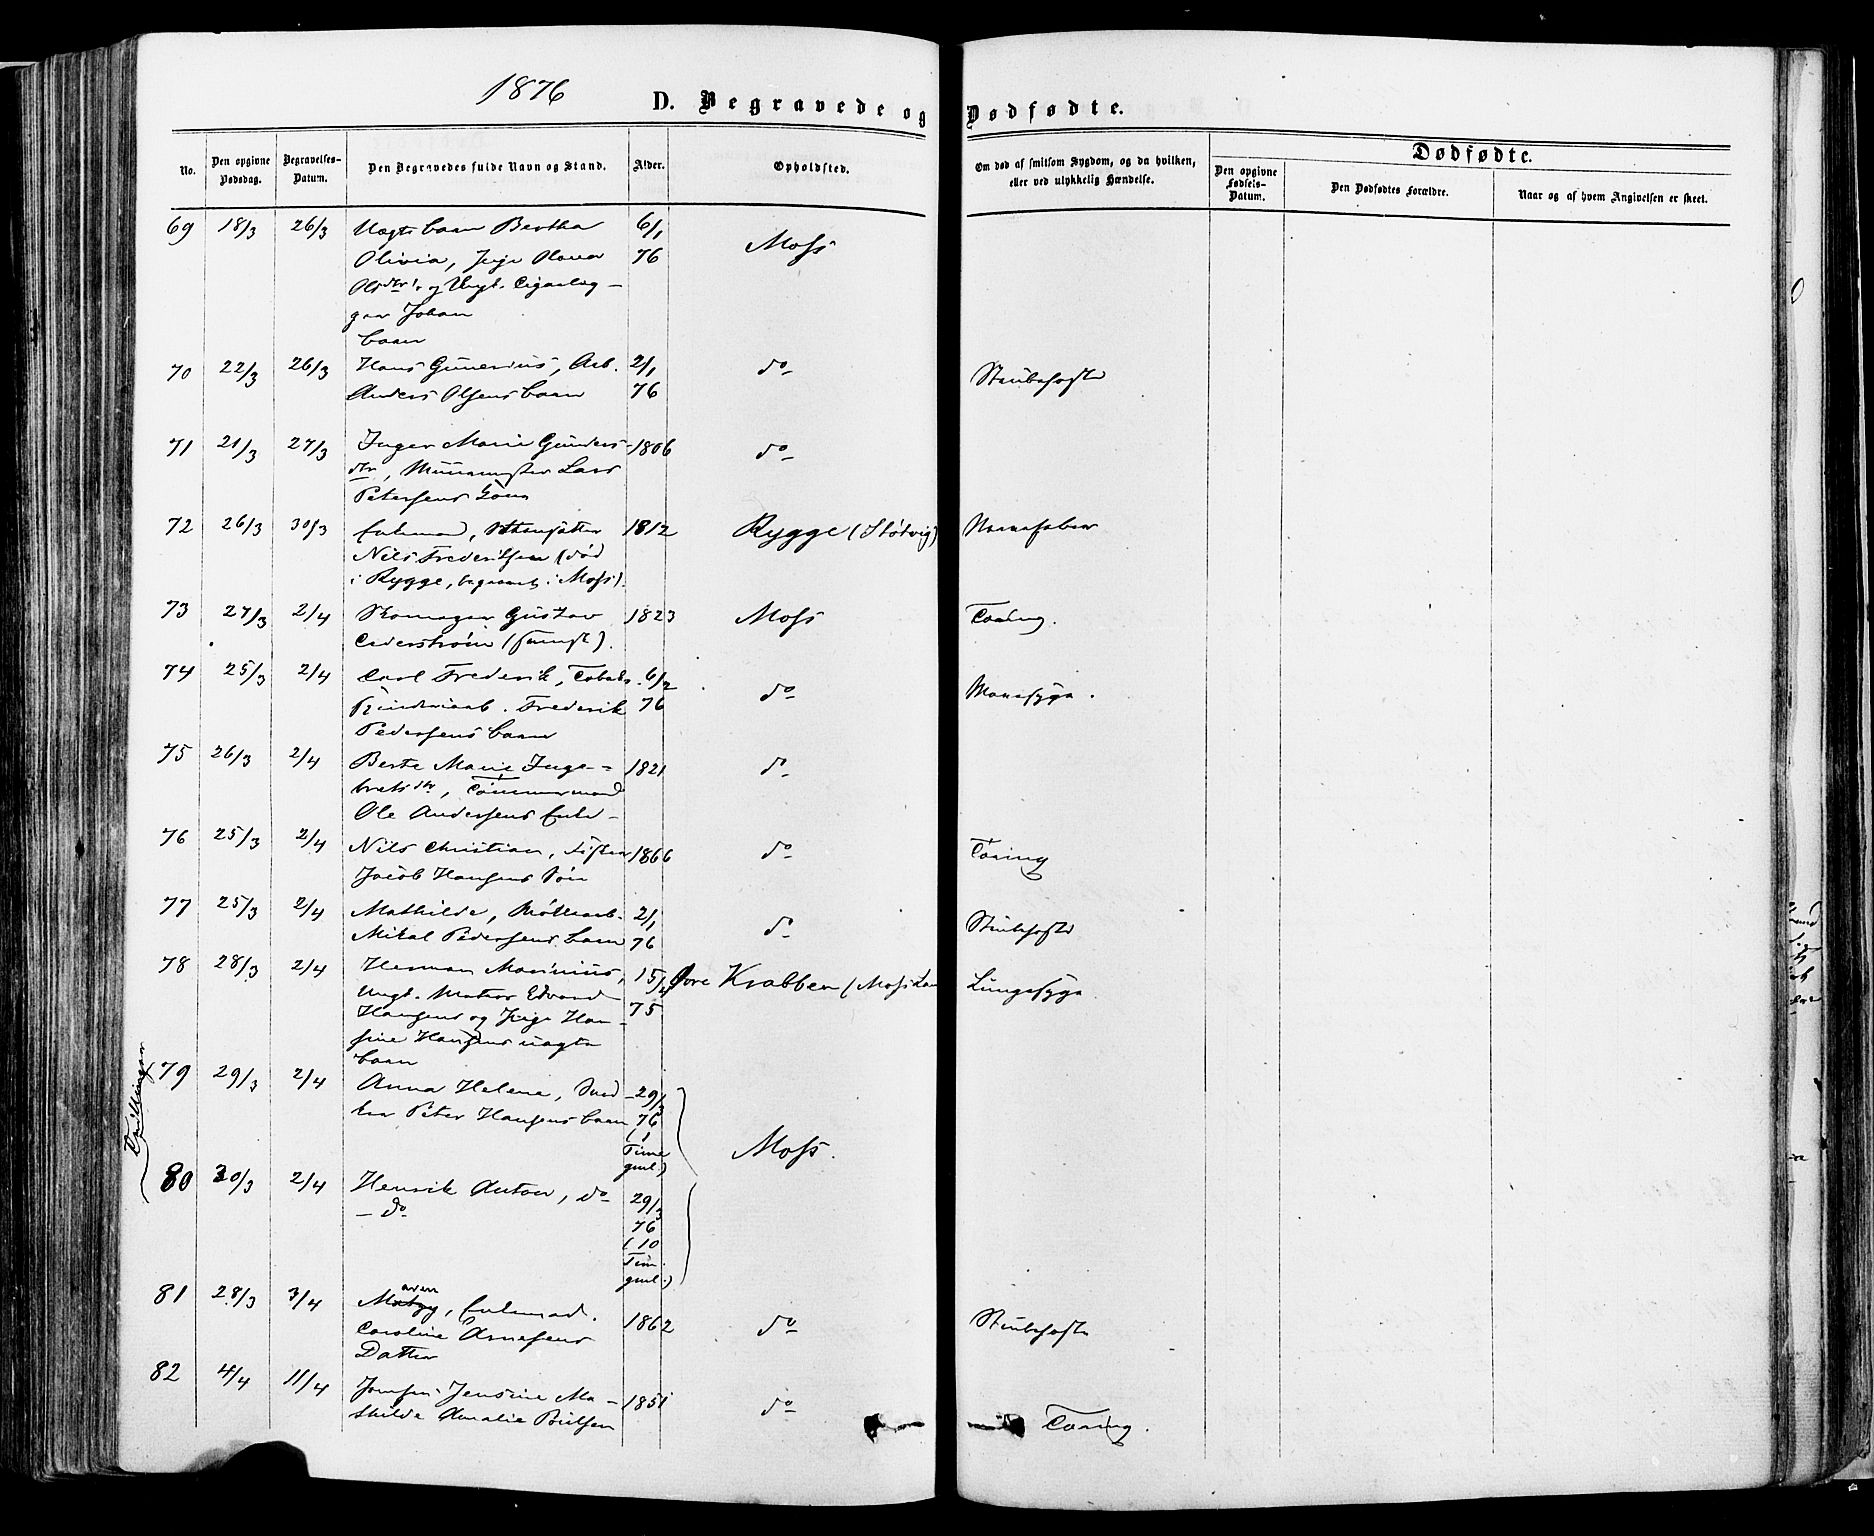 1876
D. Begravede og Dødfødte.
No.
Den opgivne Dødsdag.
Begravelses-Datum.
Den Begravedes fulde Navn og Stand.
Alder.
Opholdsted.
Om død af smitsom Sygdom, og da hvilken,
eller ved ulykkelig Hændelse.
Dødfødte.
Den opgivne Fødsels-Datum.
Den Dødfødtes Forældre.
Naar og af hvem Angivelsen er skeet.
69 18/3 26/3 Uægte barn Bertha 6/1
Olivia, Pige 76 Moss
Olsdtr og Ungk.
Johan
barn
70 22/3 26/3 Hans Gunerius, Arb. 2/1 do Strubehoste
Anders Olsens barn 76
71 21/3 27/3 Inger Marie Gunders- 1806 do
dtr, Muurmester Lars
Petersens Kone
72 26/3 30/3 Enkemand, 1812 Rygge (Støtvig)
Nils Frederiksen (død
i Rygge, begravet i Moss).
73 27/3 2/4 Skomager Gustav 1823 Moss Tæring.
Cederstrøm
74 25/3 2/4 Carl Frederik, Tobaks- 6/2 do
Frederik 76
Pedersens barn
75 26/3 2/4 Berte Marie Inge- 1821 do
bretsdtr, Tømmermand
Ole Andersens Enke-
76 25/3 2/4 Nils Christian, Fisker 1866 do Tæring
Jacob Hansens Søn
77 25/3 2/4 Mathilde, Møllearb. 2/1 do Strubehoste
Mikal Pedersens barn 76
78 28/3 2/4 Herman Marinius, 15/ Øvre Krabben (Moss Lan Lungesyge
Ungk. Matros Edvard
Hansens og Pige Han- 75
sine Hansens uægte
barn
Tvillinger
79 29/3 2/4 Anna Helene, 29/3
Peter Hansens barn 76
(1
Time
gml.)
Moss.
80 30/3 2/4 Henrik Anton, do 29/3
- do 76
(10
Tim.
gml.)
81 28/3 3/4 Enkemad. 1862 do Strubehoste
Caroline Arnesens
Datter
82 4/4 11/4 Jomfru Jensine Ma- 1851 do Tæring.
thilde Amalie